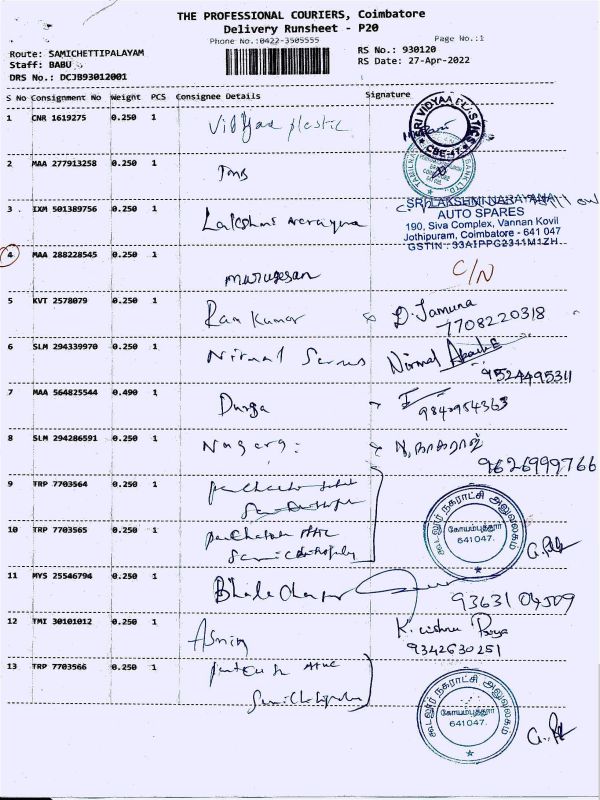 THE PROFESSIONAL COURIERS, Coimbatore
Delivery Runsheet - P20
Phone No.:0422-3505555
Page No.:1
Route: SAMICHETTIPALAYAM
Staff: BABU
DRS No.: DCJB93012001
RS No.: 930120
RS Date: 27-Apr-2022
S No Consignment No Weight PCS Consignee Details Signature
1 CNR 1619275 0.250 1 Vidyaa plastic
SRI VIDYAA PLASTICS
CBE-47
2 MAA 277913258 0.250 1 Tmb
3 IXM 501389756 0.250 1 Lakshmi narayana
SRI LAKSHMI NARAYANA
AUTO SPARES
190, Siva Complex, Vannan Kovil
Jothipuram, Coimbatore - 641 047
GSTIN : 33AIPPG2311M1ZH
4 MAA 288228545 0.250 1 murugesan C/N
5 KVT 2578079 0.250 1 Ram Kumar D. Jamuna
7708220318
6 SLM 294339970 0.250 1 Nirmal Nirmal
9524495311
7 MAA 564825544 0.490 1 Durga
9840954365
8 SLM 294286591 0.250 1 Nagaraj N. நாகராஜ்
9626999766
9 TRP 7703564 0.250 1
10 TRP 7703565 0.250 1
கூடலூர் நகராட்சி அலுவலகம்
கோயம்புத்தூர்
641047.
11 MYS 25546794 0.250 1
9363104509
12 TMI 30101012 0.250 1 K. Krishna Priya
9342630251
13 TRP 7703566 0.250 1
கூடலூர் நகராட்சி அலுவலகம்
கோயம்புத்தூர்
641047.